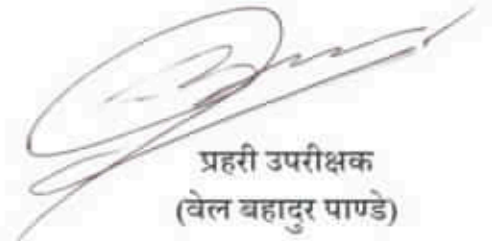 प्रहरी उपरीक्षक
(वेल बहादुर पाण्डे)